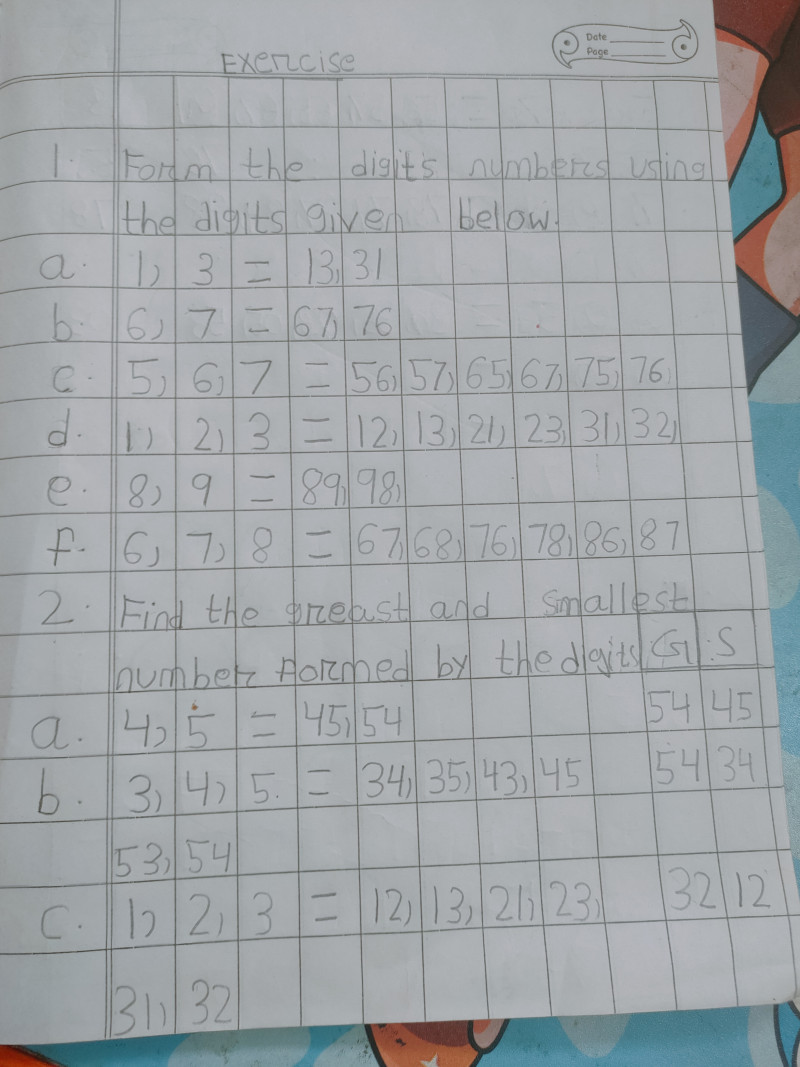 Exercise
Date
Page
1. Form the digits numbers using
the digits given below.
a. 1, 3 = 13, 31
b. 6, 7 = 67, 76
c. 5, 6, 7 = 56, 57, 65, 67, 75, 76,
d. 1, 2, 3 = 12, 13, 21, 23, 31, 32,
e. 8, 9 = 89, 98,
f. 6, 7, 8 = 67, 68, 76, 78, 86, 87
2. Find the greast and smallest
number formed by the digits G S
a. 4, 5 = 45, 54 54 45
b. 3, 4, 5. = 34, 35, 43, 45 54 34
53, 54
c. 1, 2, 3 = 12, 13, 21, 23, 32 12
31, 32